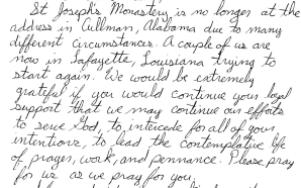 St Joseph's Monastery is no longer at the
address in Cullman, Alabama due to many
different circumstances. A couple of us are
now in Lafayette, Louisiana trying to
start again. We would be extremely
grateful if you would continue your loyal
support that we may continue our efforts
to serve God, to intercede for all of your
intentions, to lead the contemplative life
of prayer, work, and pennance. Please pray
for us as we pray for you.